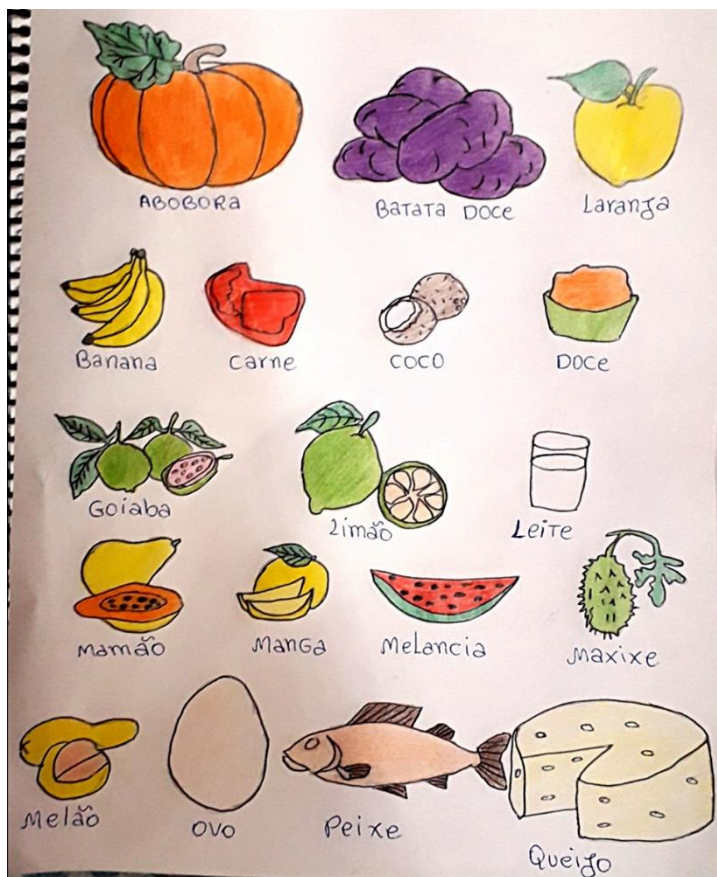 ABOBORA
BATATA DOCE
Laranja
Banana
Carne
COCO
DOCE
Goiaba
Limão
Leite
Mamão
Manga
Melancia
Maxixe
Melão
Ovo
Peixe
Queijo